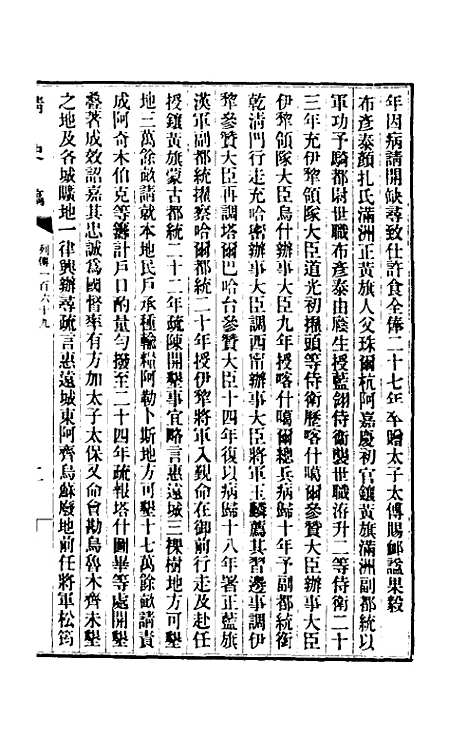 年因病請開缺尋致仕許食全俸二十七年卒贈太子太傅賜卹諡果毅
布彥泰顏扎氏滿洲正黃旗人父珠爾杭阿嘉慶初官鑲黃旗滿洲副都統以
軍功予騎都尉世職布彥泰由廕生授藍翎侍衛襲世職洊升二等侍衛二十
三年充伊犂領隊大臣道光初擢頭等侍衛歷喀什噶爾參贊大臣辦事大臣
伊犂領隊大臣烏什辦事大臣九年授喀什噶爾總兵病歸十年予副都統銜
乾清門行走充哈密辦事大臣調西甯辦事大臣將軍玉麟薦其習邊事調伊
犂參贊大臣再調塔爾巴哈台參贊大臣十四年復以病歸十八年署正藍旗
漢軍副都統擢察哈爾都統二十年授伊犂將軍入覲命在御前行走及赴任
授鑲黃旗蒙古都統二十二年疏陳開墾事宜略言惠遠城三棵樹地方可墾
地三萬餘畝請就本地民戶承種輸糧阿勒卜斯地方可墾十七萬餘畝請責
成阿奇木伯克等籌計戶口酌量勻撥至二十四年疏報塔什圖畢等處開墾
疊著成效詔嘉其忠誠爲國督率有方加太子太保又命台勘烏魯木齊未墾
之地及各城曠地一律興辦尋疏言惠遠城東阿齊烏蘇廢地前任將軍松筠
清史稿
列傳一百六十九